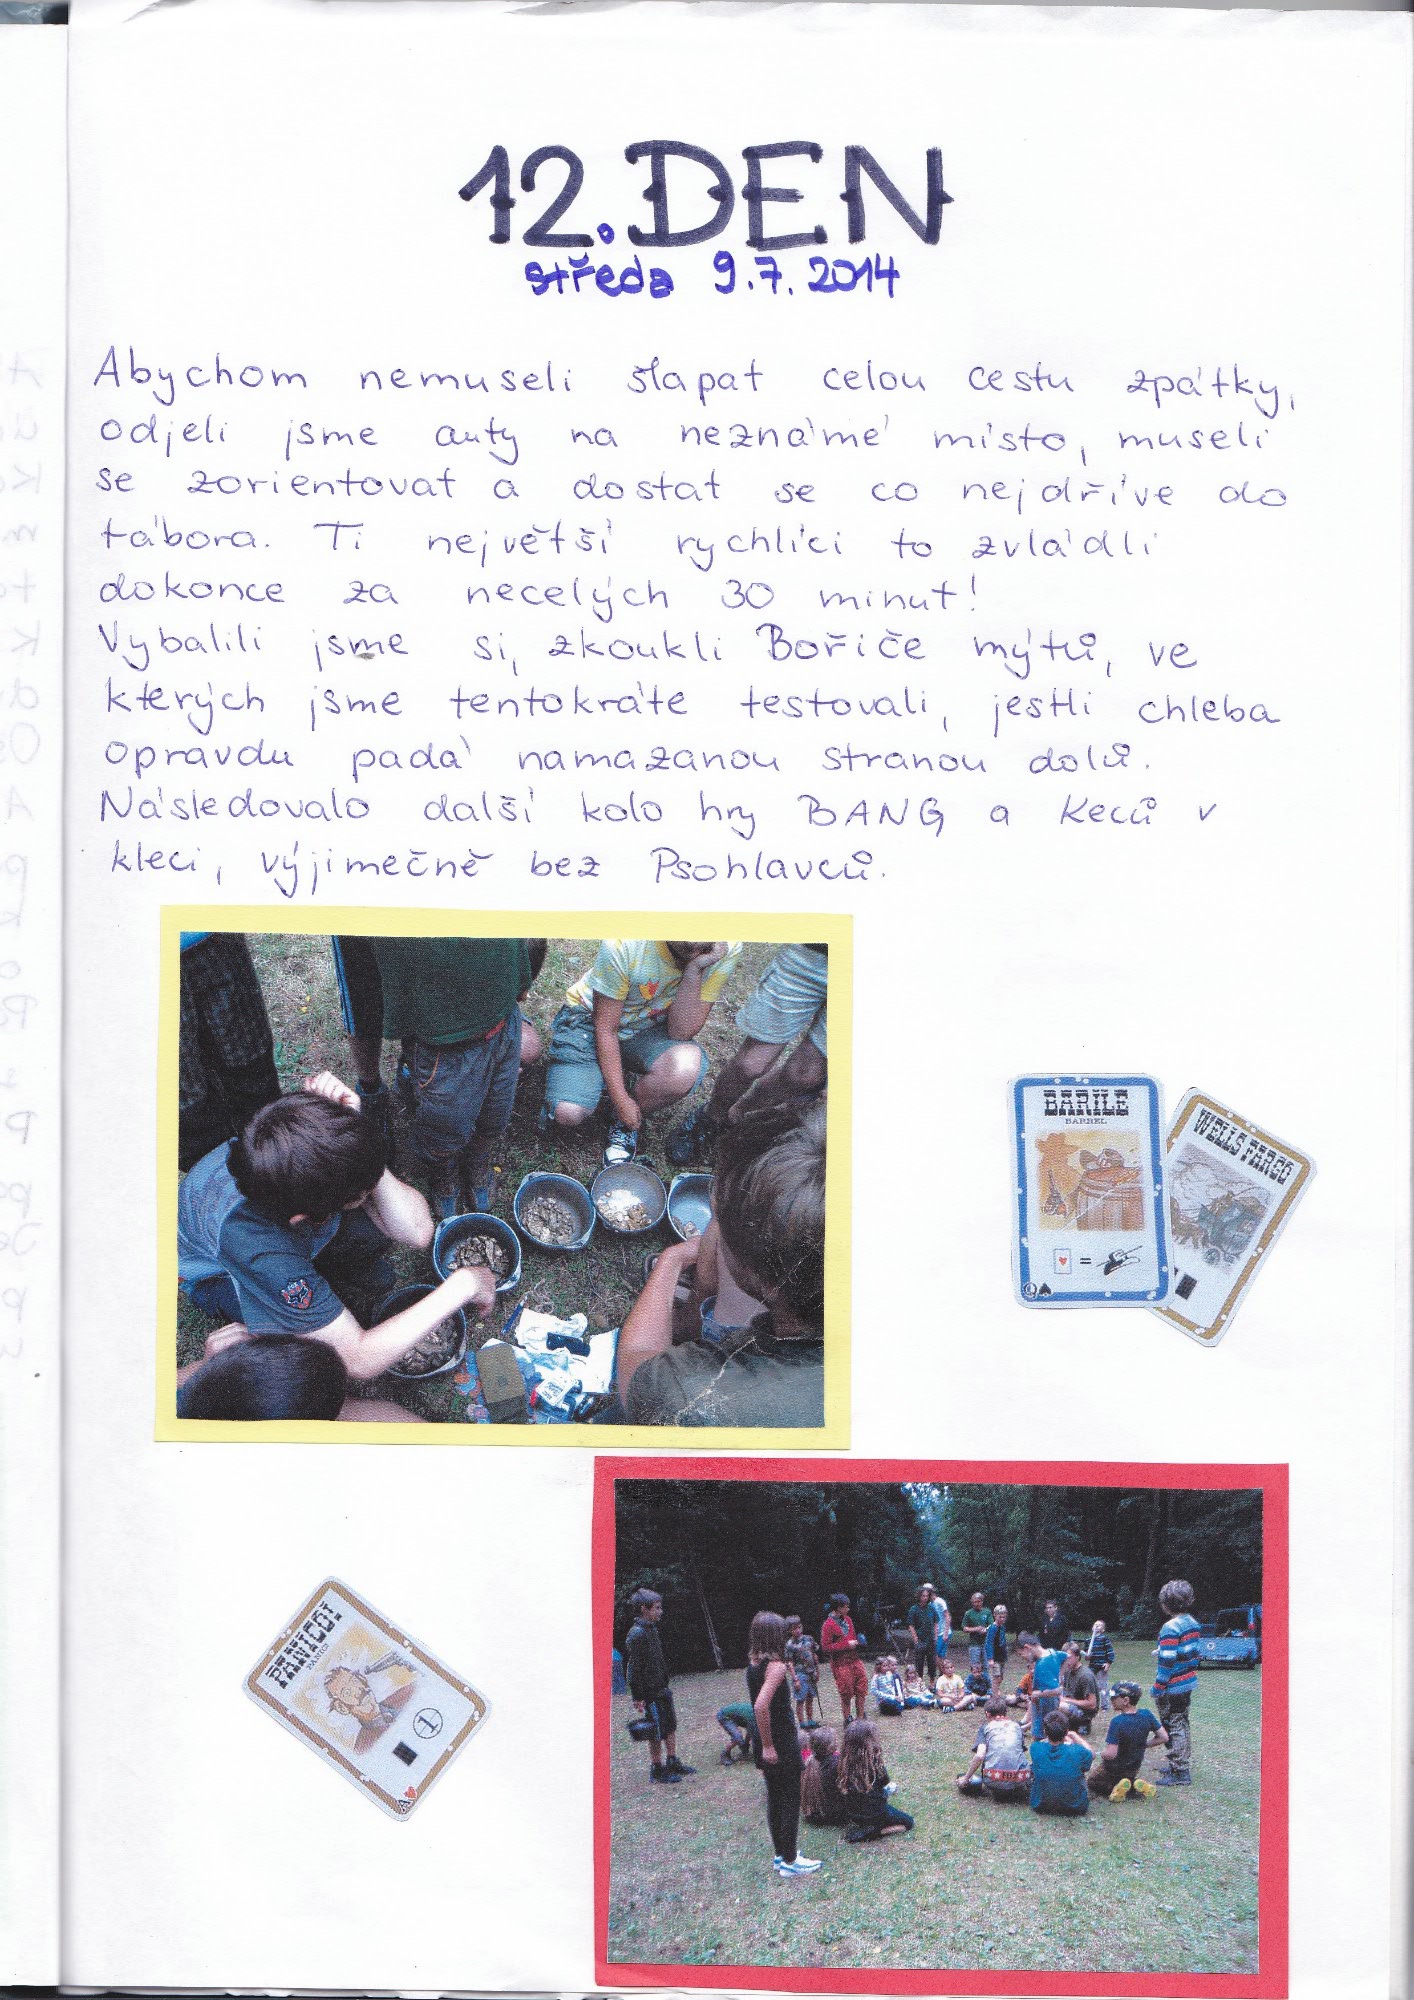 12. DEN
středa 9.7.2014
Abychom nemuseli šlapat celou cestu zpátky,
odjeli jsme auty na neznámé místo, museli
se zorientovat a dostat se co nejdříve do
tábora. Ti největší rychlíci to zvládli
dokonce za necelých 30 minut!
Vybalili jsme si, zkoukli Bořiče mýtů, ve
kterých jsme tentokráte testovali, jestli chleba
opravdu padá namazanou stranou dolů.
Následovalo další kolo hry BANG a Keců v
kleci, výjimečně bez Psohlavců.
BARILE
BARREL
=
9
WELLS FARGO
PANICO!
PANIC!
1
A